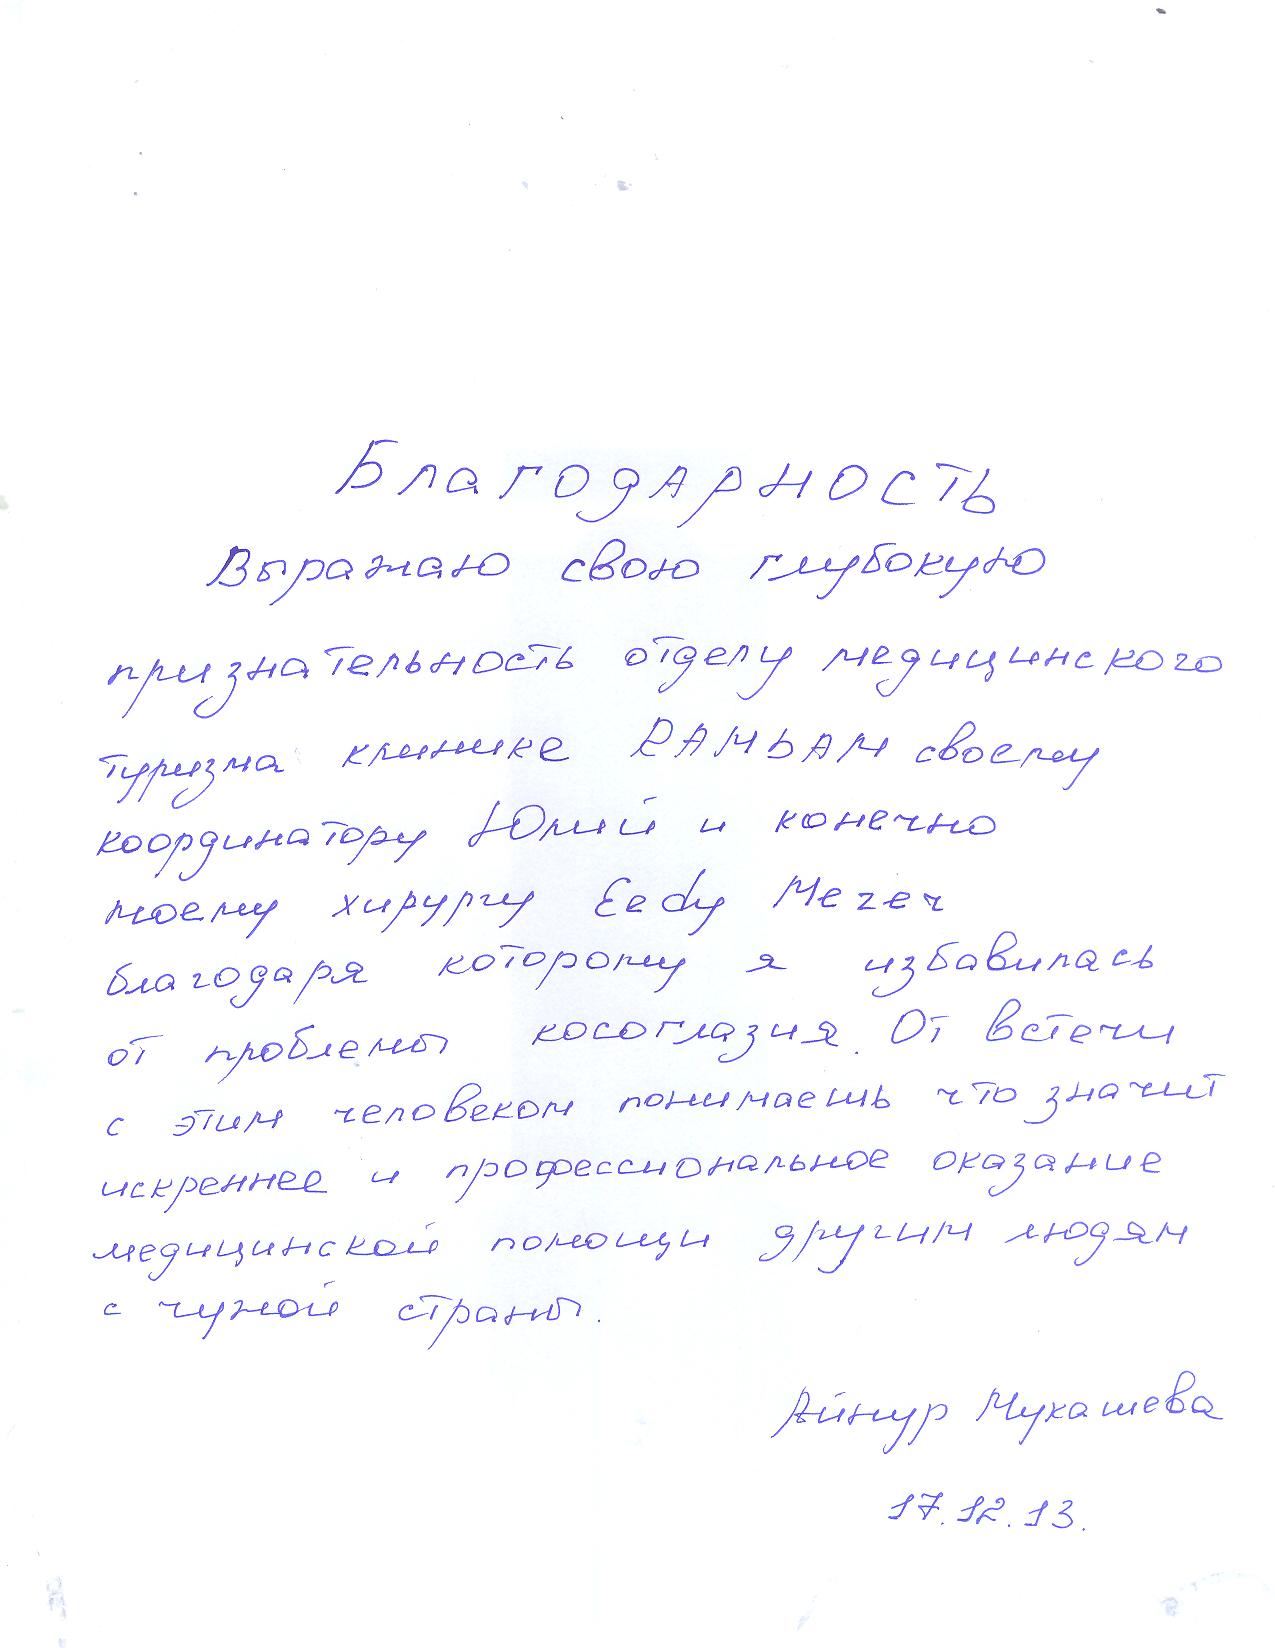 Благодарность
Выражаю свою глубокую
признательность отделу медицинского
туризма клинике RAMbAM своему
координатору Юлий и конечно
моему хирургу Eedy Мегеч
благодаря которому я избавилась
от проблемы косоглазия. От встечи
с этим человеком понимаешь что значит
искреннее и профессиональное оказание
медицинской помощи другим людям
с чужой страны.
Айнур Мукашева
17.12.13.